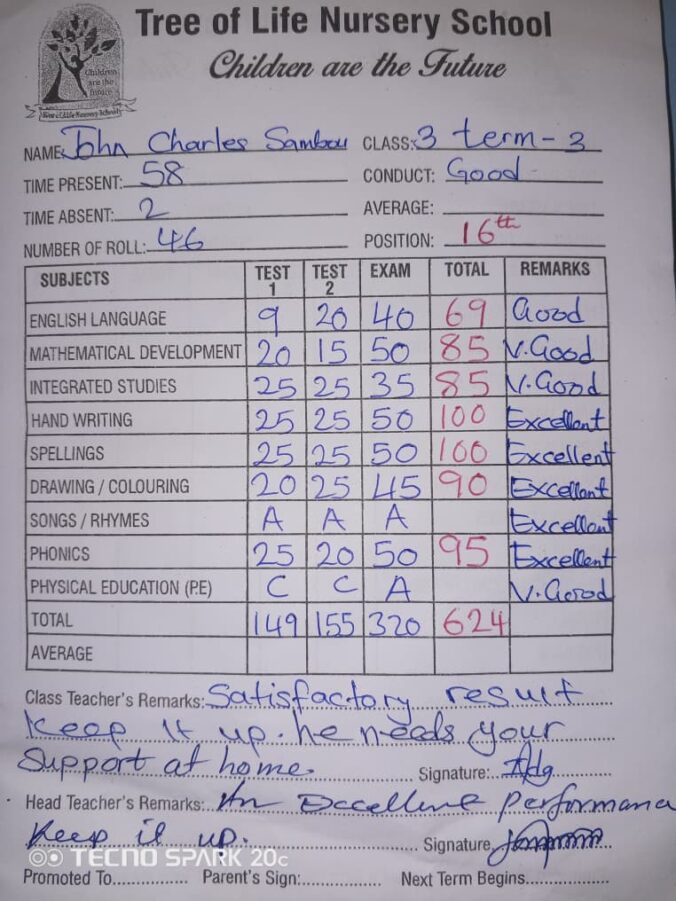 Tree of Life Nursery School
Children are the Future
Children
are the
future
Tree of Life Nursery School
NAME: John Charles Sambou CLASS: 3 term - 3
TIME PRESENT: 58 CONDUCT: Good
TIME ABSENT: 2 AVERAGE:
NUMBER OF ROLL: 46 POSITION: 16th
SUBJECTS TEST 1 TEST 2 EXAM TOTAL REMARKS
ENGLISH LANGUAGE 9 20 40 69 Good
MATHEMATICAL DEVELOPMENT 20 15 50 85 V.Good
INTEGRATED STUDIES 25 25 35 85 V.Good
HAND WRITING 25 25 50 100 Excellent
SPELLINGS 25 25 50 100 Excellent
DRAWING / COLOURING 20 25 45 90 Excellent
SONGS / RHYMES A A A Excellent
PHONICS 25 20 50 95 Excellent
PHYSICAL EDUCATION (P.E) C C A V.Good
TOTAL 149 155 320 624
AVERAGE
Class Teacher's Remarks: Satisfactory result
Keep it up. he needs your
Support at home. Signature:
Head Teacher's Remarks: An Excellent performance
Keep it up. Signature
TECNO SPARK 20c
Promoted To Parent's Sign: Next Term Begins